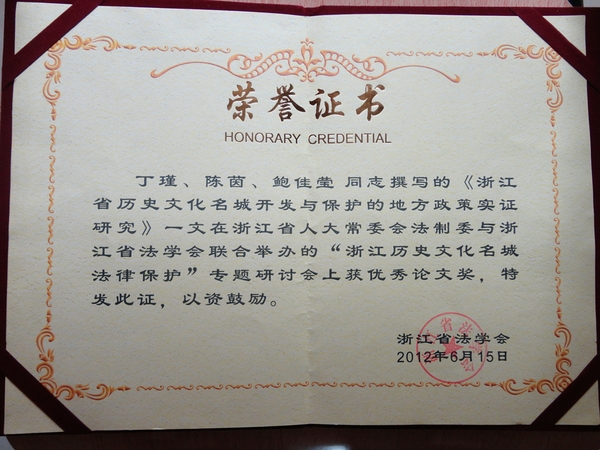 荣誉证书
HONORARY CREDENTIAL
丁瑾、陈茵、鲍佳莹 同志撰写的《浙江
省历史文化名城开发与保护的地方政策实证
研究》一文在浙江省人大常委会法制委与浙
江省法学会联合举办的“浙江历史文化名城
法律保护”专题研讨会上获优秀论文奖，特
发此证，以资鼓励。
浙江省法学会
2012年6月15日